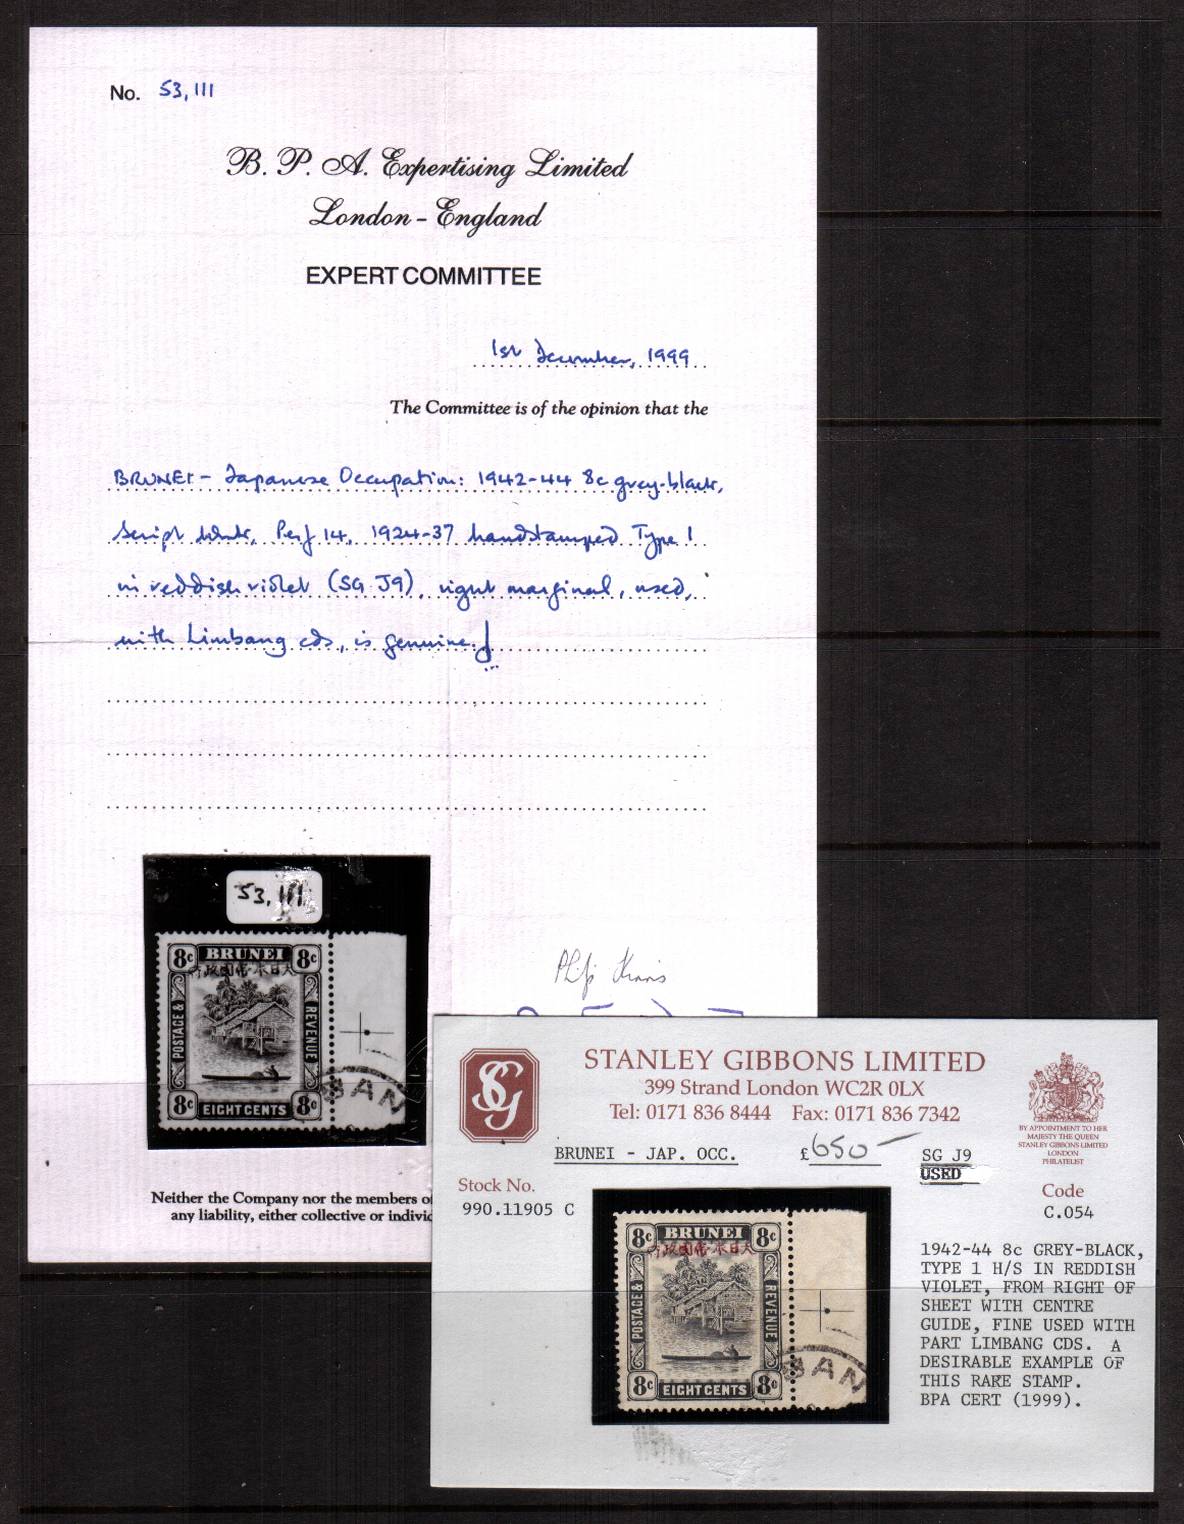 No. 53,111
B. P. A. Expertising Limited
London - England
EXPERT COMMITTEE
1st December, 1999
The Committee is of the opinion that the
BRUNEI - Japanese Occupation: 1942-44 8c grey-black,
Script wmk, Perf 14, 1924-37 handstamped Type 1
in reddish violet (SG J9), right marginal, used,
with Limbang cds, is genuine.
53,111
8c BRUNEI 8c
行政國帝本日大
POSTAGE &
REVENUE
8c EIGHT CENTS 8c
BAN
Neither the Company nor the members o
any liability, either collective or individ
SG
STANLEY GIBBONS LIMITED
399 Strand London WC2R 0LX
Tel: 0171 836 8444 Fax: 0171 836 7342
BY APPOINTMENT TO HER
MAJESTY THE QUEEN
STANLEY GIBBONS LIMITED
LONDON
PHILATELIST
BRUNEI - JAP. OCC. £650- SG J9
USED
Stock No.
990.11905 C
Code
C.054
8c BRUNEI 8c
行政國帝本日大
POSTAGE &
REVENUE
8c EIGHT CENTS 8c
BAN
1942-44 8c GREY-BLACK,
TYPE 1 H/S IN REDDISH
VIOLET, FROM RIGHT OF
SHEET WITH CENTRE
GUIDE, FINE USED WITH
PART LIMBANG CDS. A
DESIRABLE EXAMPLE OF
THIS RARE STAMP.
BPA CERT (1999).